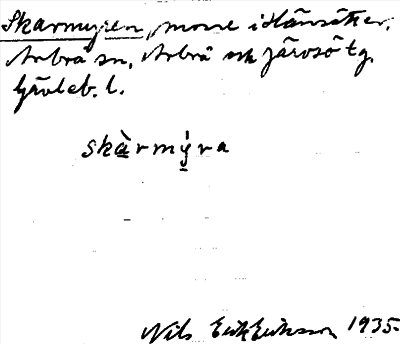 Skarmyren, mosse i Hänsätter,
Arbrå sn, Arbrå och Järvsö tg,
Gävleb. l.
skàrmýra
Nils Erik Eriksson 1935.